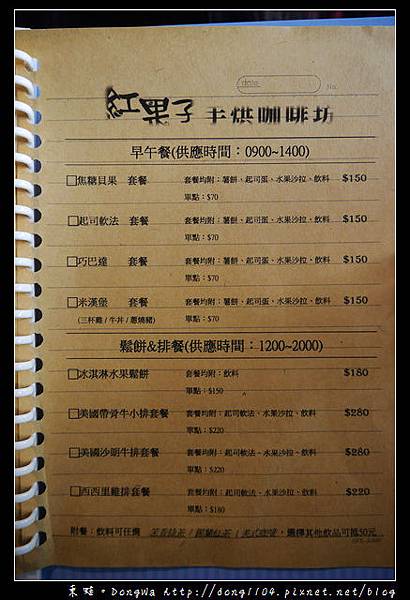 date
No.
紅果子 手烘咖啡坊
早午餐(供應時間：0900~1400)
焦糖貝果 套餐 套餐均附：薯餅、起司蛋、水果沙拉、飲料 $150
單點：$70
起司軟法 套餐 套餐均附：薯餅、起司蛋、水果沙拉、飲料 $150
單點：$70
巧巴達 套餐 套餐均附：薯餅、起司蛋、水果沙拉、飲料 $150
單點：$70
米漢堡 套餐 套餐均附：薯餅、起司蛋、水果沙拉、飲料 $150
(三杯雞 / 牛丼 / 蔥燒豬) 單點：$70
鬆餅&排餐(供應時間：1200~2000)
冰淇淋水果鬆餅 套餐均附：飲料 $180
單點：$150
美國帶骨牛小排套餐 套餐均附：起司軟法、水果沙拉、飲料 $280
單點：$220
美國沙朗牛排套餐 套餐均附：起司軟法、水果沙拉、飲料 $280
單點：$220
西西里雞排套餐 套餐均附：起司軟法、水果沙拉、飲料 $220
單點：$180
附餐：飲料可任選 茉香綠茶 / 錫蘭紅茶 / 美式咖啡，選擇其他飲品可抵50元
東蛙。DongWa http://dong1104.pixnet.net/blog